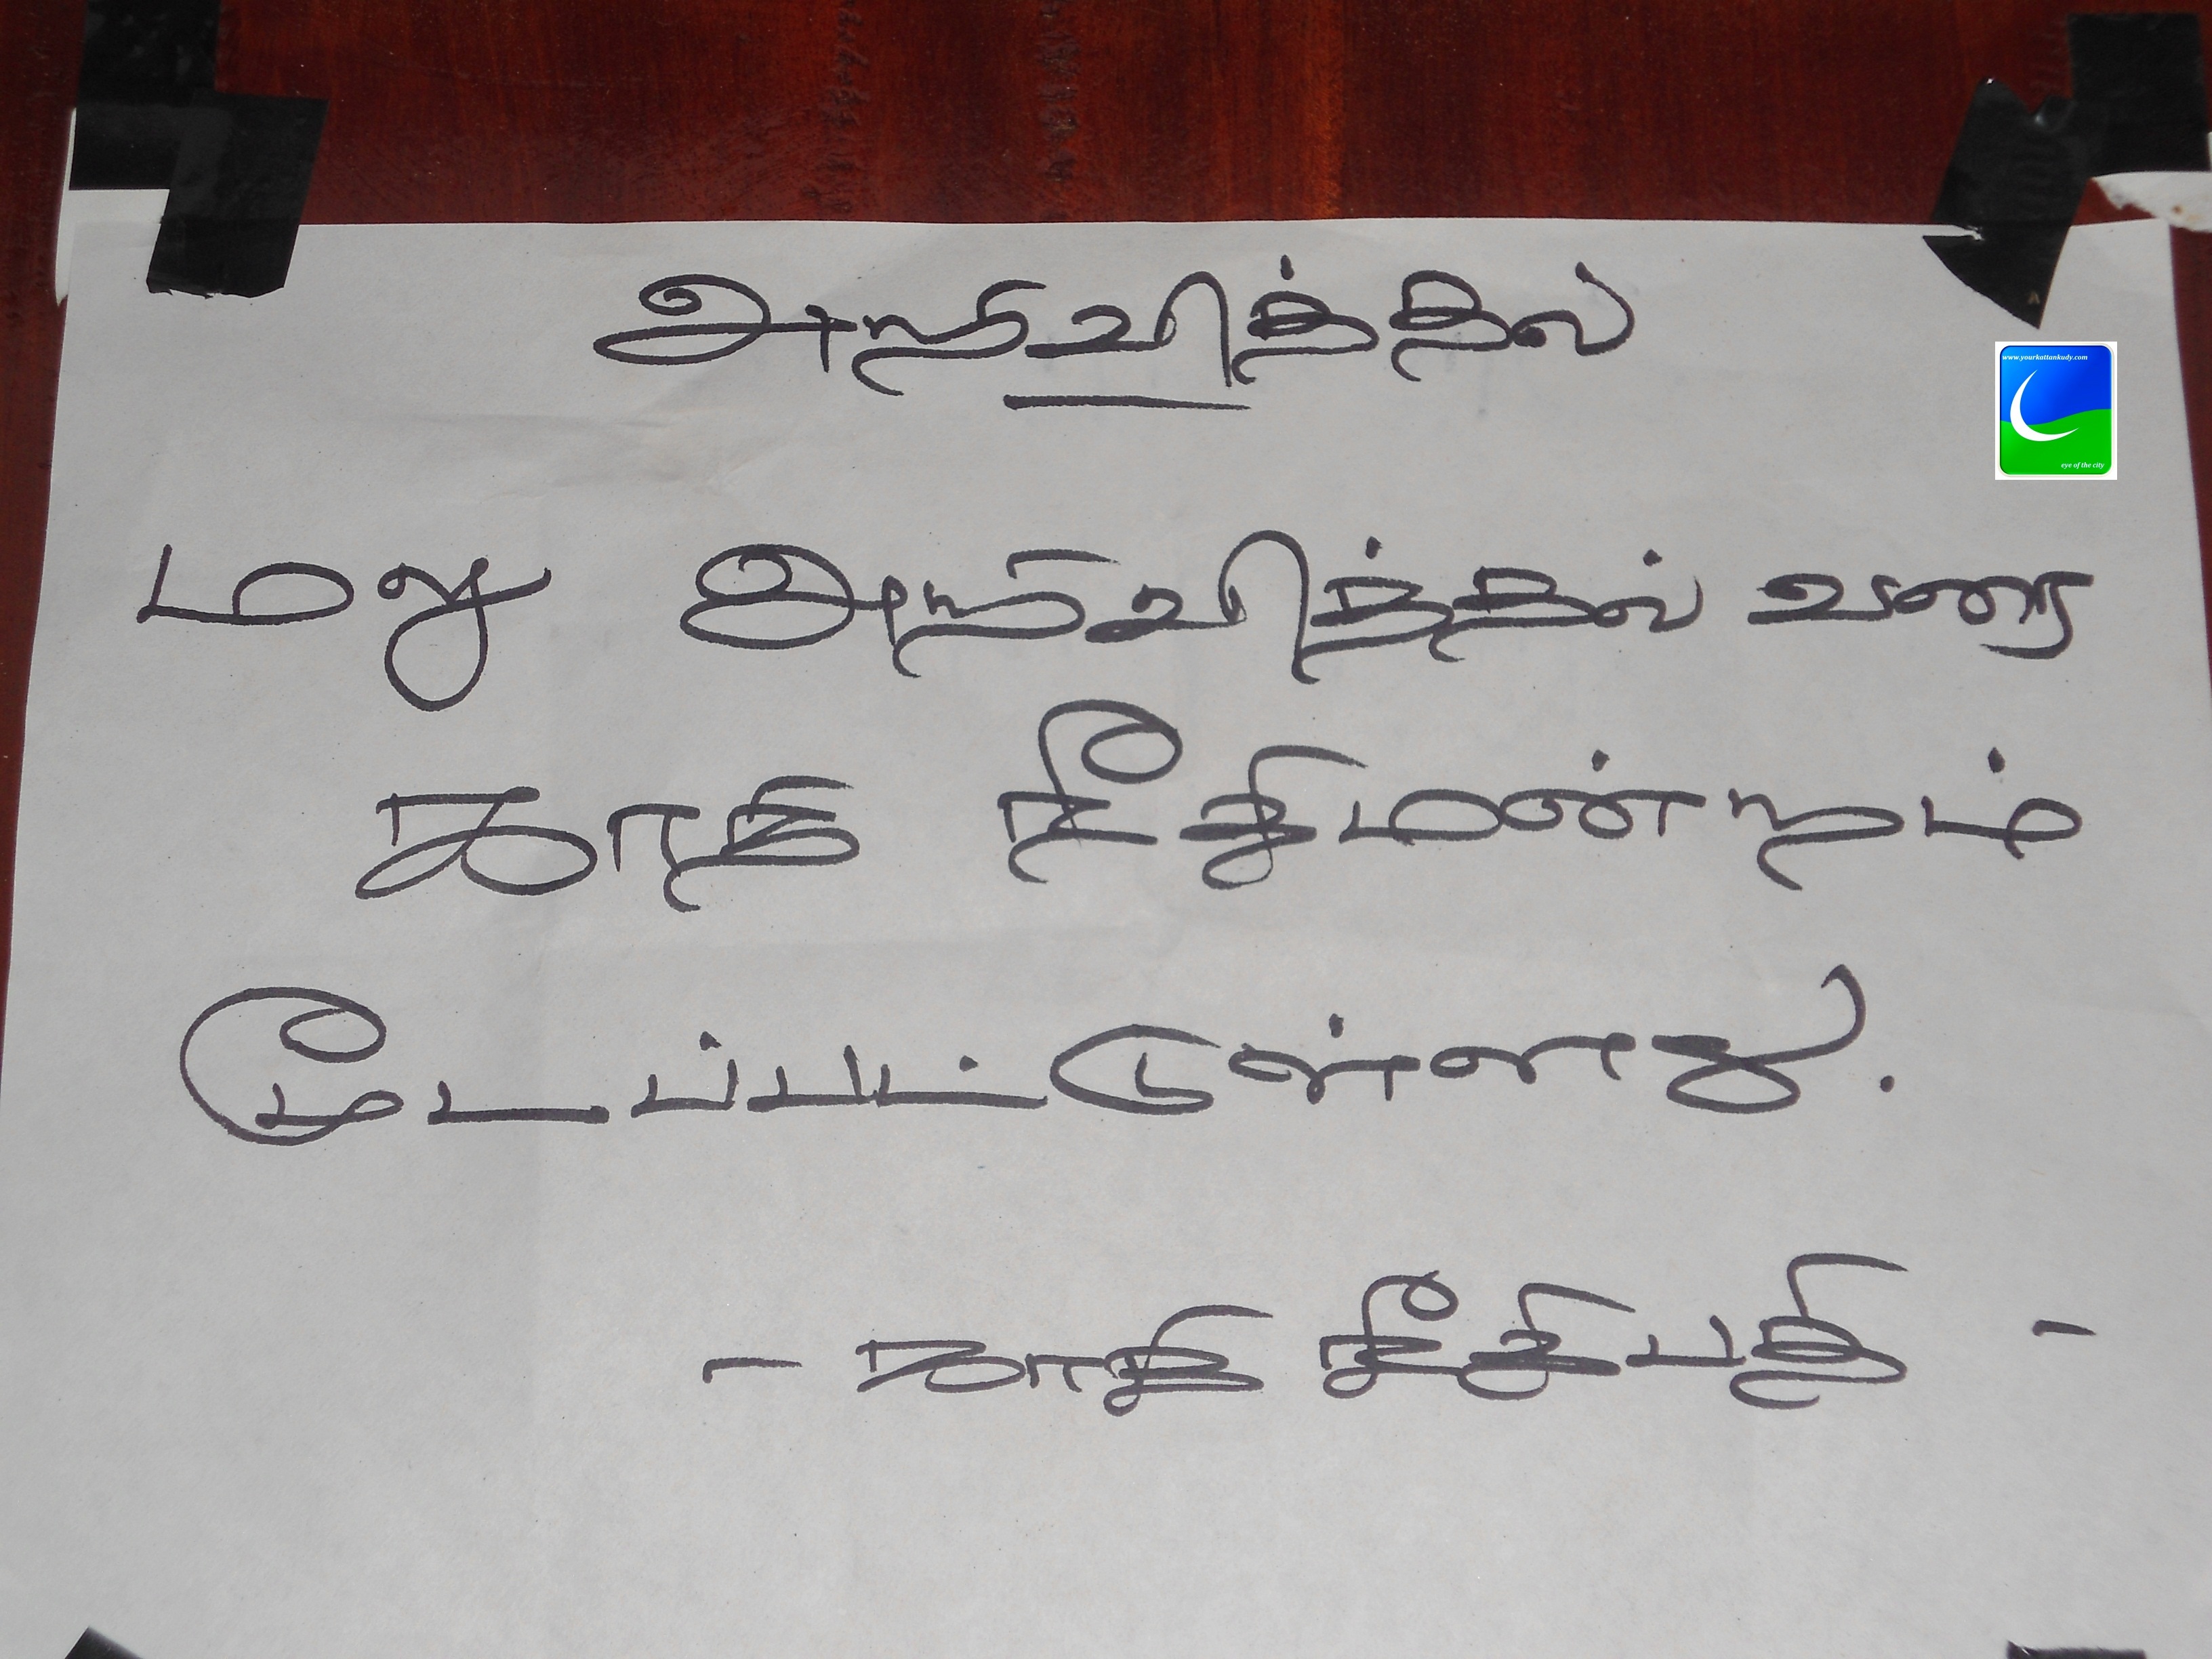 அறிவித்தல்
www.yourkattankudy.com
eye of the city
மறு அறிவித்தல் வரை
காதி நீதிமன்றம்
மூடப்பட்டுள்ளது.
- காதி நீதிபதி -